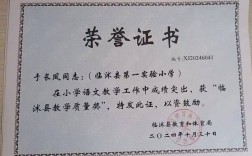 荣誉证书
编号:XJ20246641
于长凤同志：（临沭县第一实验小学）
在小学语文教学工作中成绩突出，获“临
沭县教学质量奖”，特发此证，以资鼓励。
临沭县教育和体育局
二〇二四年十月三十日